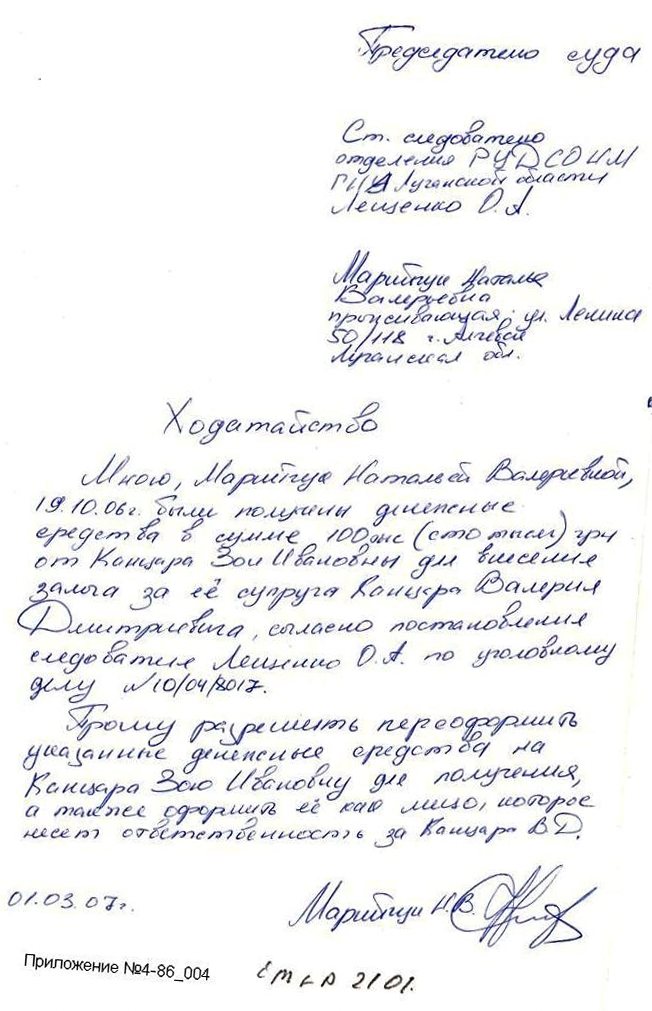 Председателю суда
Ст. следователю
отделения РУДСО НМ
ГНА Луганской области
Лещенко О.А.
Наталье
Валерьевна
проживающая: ул. Ленина
50/118 г. Алчевск
Луганская обл.
Ходатайство
Мною, Натальей Валериевной,
19.10.06г. были получены денежные
средства в сумме 100тыс (сто тысяч) грн
от Канцара Зои Ивановны для внесения
залога за её супруга Канцара Валерия
Дмитриевича, согласно постановления
следователя Лещенко О.А. по уголовному
делу №10/04/8017.
Прошу разрешить переоформить
указанные денежные средства на
Канцара Зою Ивановну для получения,
а также оформить её как лицо, которое
несет ответственность за Канцара В.Д.
01.03.07г.
Н.В.
Приложение №4-86_004
2101.